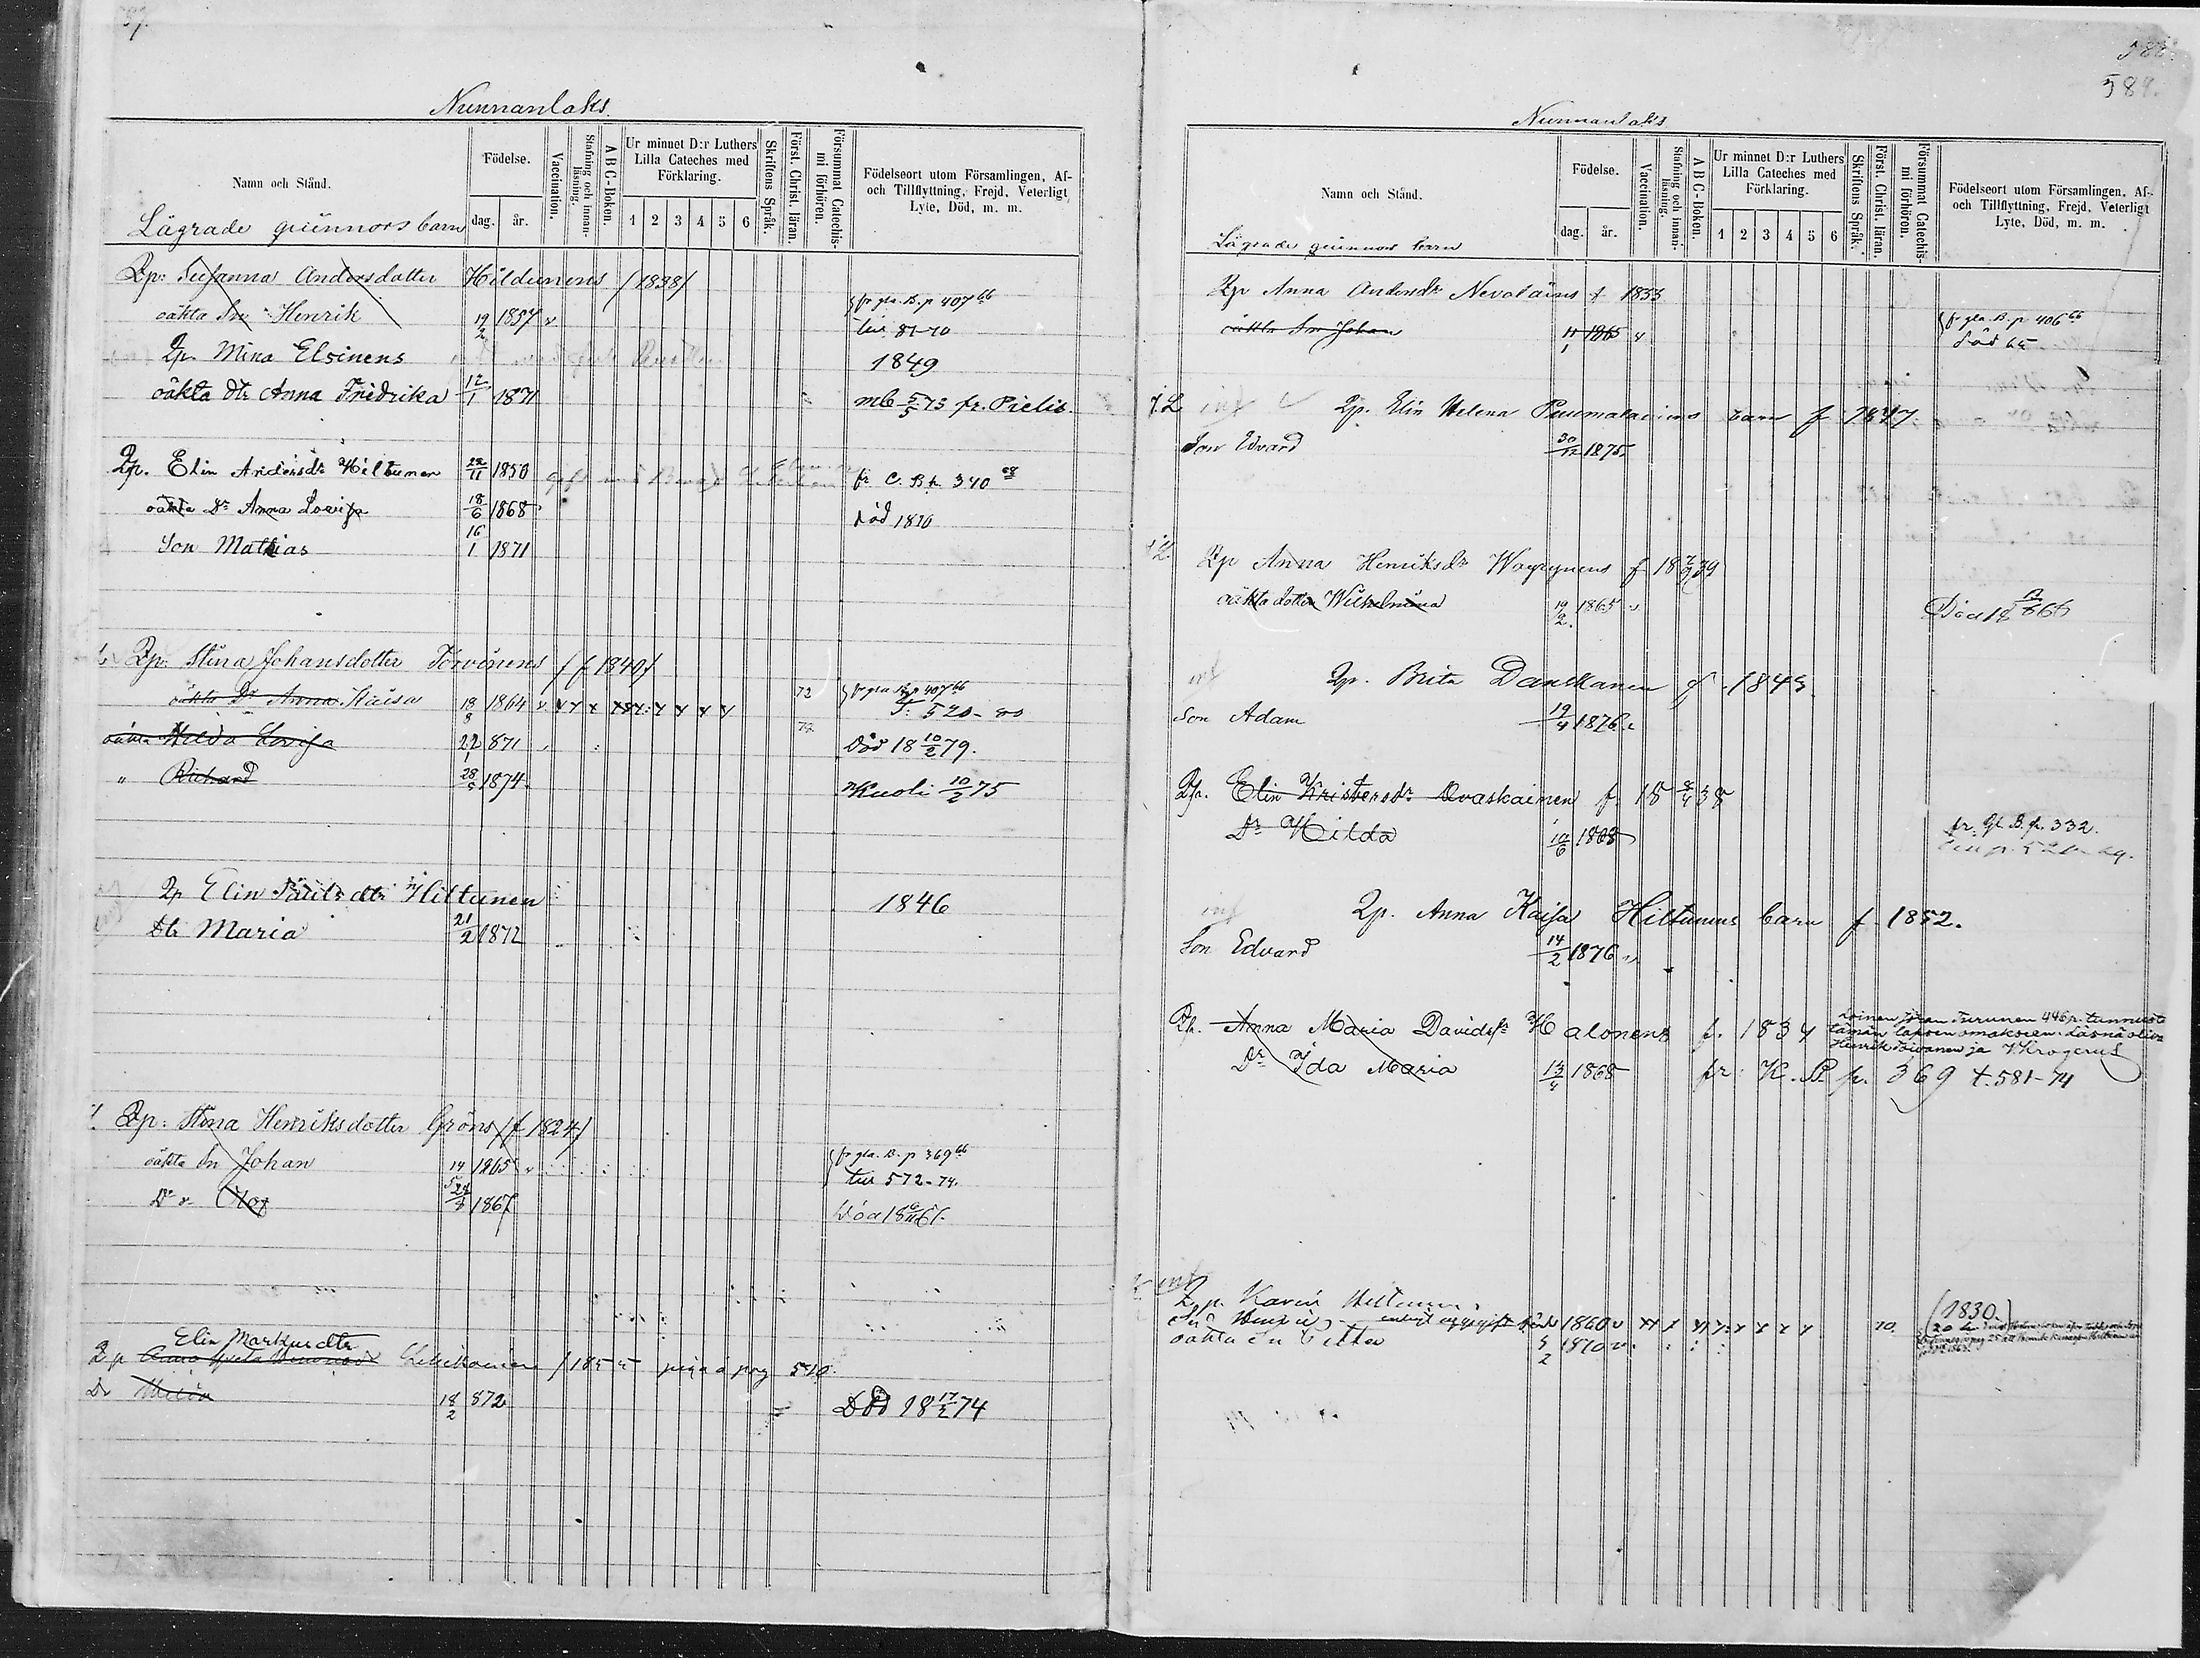 Nunnanlaks.
Namn och Stånd.
Födelse.
dag.
år.
Vaccination.
Stafning och innanläsning.
A B C-Boken.
Ur minnet D:r Luthers Lilla Cateches med Förklaring.
1 2 3 4 5 6
Skriftens Språk.
Först. Christ. läran.
Försummat Catechismi förhören.
Födelseort utom Församlingen, Af- och Tillflyttning, Frejd, Veterligt Lyte, Död, m. m.
Lägrade qvinnors barn
Qp: Susanna Andersdotter Hildunens (1838)
oäkta Sn Henrik 19/2 1857 fr gla. B. p 407 66
tur 81-70
Qp. Mina Elsinens 1849
oäkta dtr Anna Fredrika 12/1 1871 mb 5/5 73 fr. Pielis.
Qp. Elin Andersdr Hiltunen 1850 fr C. B p. 340
oäkta Dr Anna Lovisa 18/6 1868 död 1870
Son Mathias 16/1 1871
Qp: Stina Johansdotter Torvinens (f 1840)
oäkta Dr Anna Kaisa 18/8 1864 72 fr gla B. p 407 66
T: 520-80
oäkta Hilda Lovisa 22/1 871 72 Död 18 10/2 79.
" Richard 1874 Kuoli 10/2 75
Qp Elin Paulsdtr Hiltunen 1846
Dtr Maria 21/2 1872
Qp: Stina Henriksdotter Gröns (f 1824)
oäkta Sn Johan 14/5 1865 fr gla. B. p 369 66
tur 572-74.
Olof 1867 Död
Elin Markusdtr
Qp 510.
Dr 18/2 872 Död 18 17/2 74
589.
Nunnanlaks
Namn och Stånd.
Födelse.
dag.
år.
Vaccination.
Stafning och innanläsning.
A B C-Boken.
Ur minnet D:r Luthers Lilla Cateches med Förklaring.
1 2 3 4 5 6
Skriftens Språk.
Först. Christ. läran.
Försummat Catechismi förhören.
Födelseort utom Församlingen, Af- och Tillflyttning, Frejd, Veterligt Lyte, Död, m. m.
Lägrade qvinnors barn
Qp Anna Andersdr Nevalainens f 1833
oäkta Sn Johan 11/1 1865 fr gla. B. p 406 66
död 65
inf Qp. Elin Helena barn f 1847
Son Edvard 30/12 1875.
Qp Anna Henriksdr Wäyrynens f 18 39
oäkta dotter Wilhelmina 19/2 1865 Död
inf Qp. Brita Danskanen f. 1843
Son Adam 19/4 1876
Qp. Elin Kristersdr Ovaskainen f. 18 38
Dr Hilda 10/6 1868 fr. Gl. B. p. 332.
inf Qp. Anna Kaisa Hiltunens barn f 1852.
Son Edvard 14/2 1876
Qp. Anna Maria Davidsdr Halonens f. 1834
Loinen Johan Turunen 446 p. tunnusta
tämän lapsen omakseen. Läsnä oliva
Henrik Toivanen ja V. Krogerus
Dr Ida Maria 13/4 1868 fr. K. B. p. 369 t. 581-74
inf
Qp. Karin Hiltunen (1830)
Sn 1860 70.
oäkta Sn Petter 5/2 1870